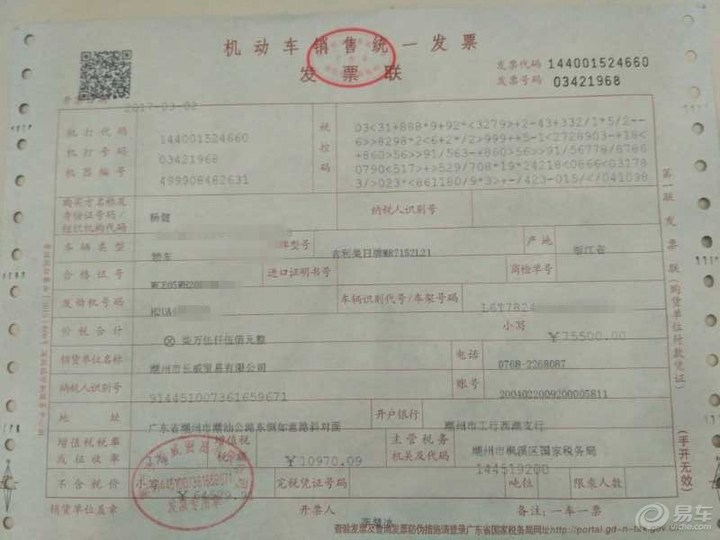 机动车销售统一发票
发票联
发票代码 144001524660
发票号码 03421968
2017-03-02
机打代码 144001524660
机打号码 03421968
机器编号 499908482631
税控码
03<31+888*9+92*<3279>+2-43+332/1*5/2--
6>>8298*2<6+2*/2>999++5-1<2728903-+18<
+860>56>>91/563-+860>56>>91/56778/8786
0790<517>+>529/708*19*24218<0866<03178
3/>023*<861180/9*3>+-/423-015/</041098
购买方名称及身份证号码/组织机构代码 杨健 纳税人识别号
车辆类型 轿车 厂牌型号 吉利美日牌MR7152L21 产地 浙江省
合格证号 进口证明书号 商检单号
发动机号码 车辆识别代号/车架号码 L6T7824
价税合计 ⊗柒万伍仟伍佰元整 小写 ¥75500.00
销货单位名称 潮州市长威贸易有限公司 电话 0768-2268087
纳税人识别号 914451007361659671 账号 2004022009200005811
地址 广东省潮州市潮汕公路东侧如意路斜对面 开户银行 潮州市工行西湖支行
增值税税率或征收率 增值税税额 ¥10970.09 主管税务机关及代码 潮州市枫溪区国家税务局 144519200
不含税价 小写 完税凭证号码 吨位 限乘人数
销货单位盖章 开票人 备注:一车一票
第一联 发票联 (购货单位付款凭证)
(手开无效)
914451007361659671
发票专用章
查验发票及查阅发票防伪措施请登录广东省国家税务局网址http://portal.gd-n-tax.gov.cn
易车